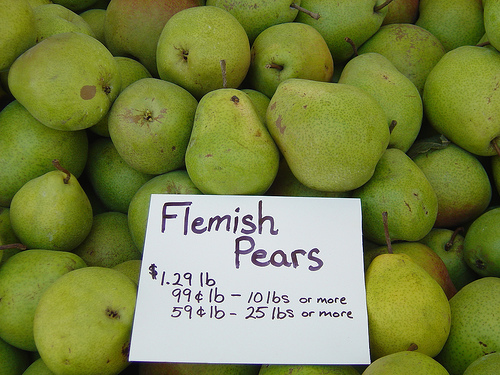 Flemish
Pears
$1.29 lb
99¢ lb - 10 lbs or more
59¢ lb - 25 lbs or more